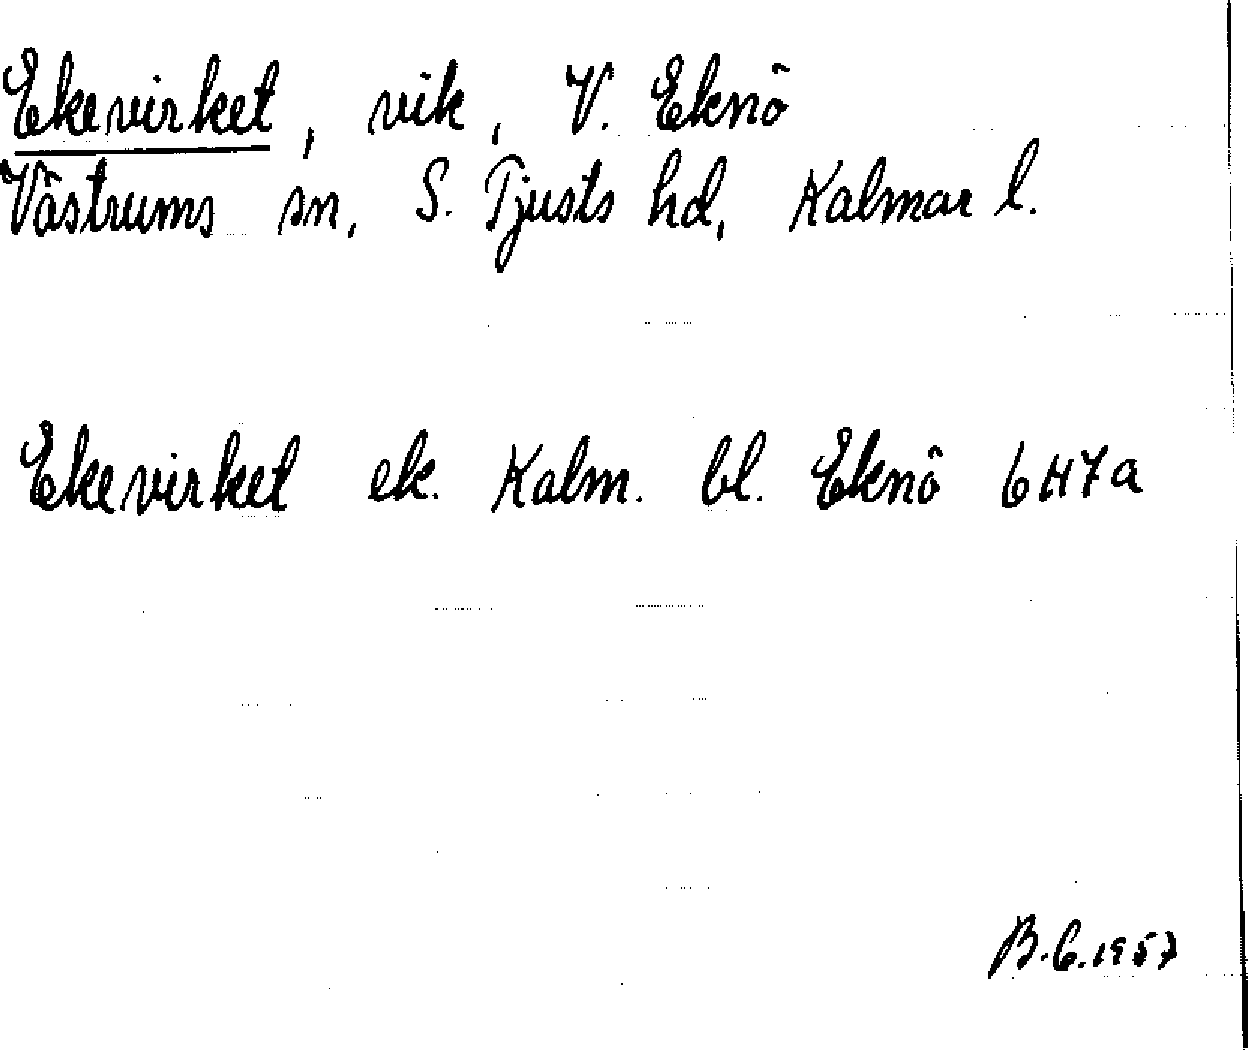 Ekevirket, vik, V. Eknö
Västrums sn, S. Tjusts hd, Kalmar l.
Ekevirket ek. Kalm. bl. Eknö 6H7a
B.G.1957